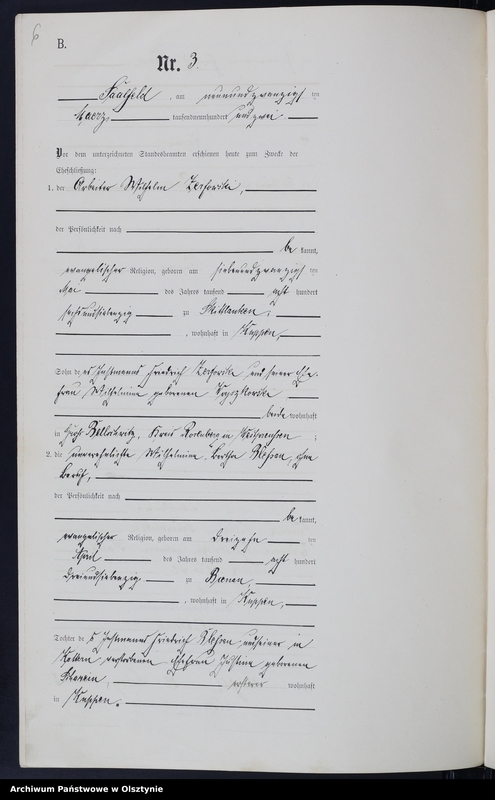 6
B.
Nr. 3.
Saalfeld, am neunundzwanzigs ten
Maerz, tausendneunhundert und zwei
Vor dem unterzeichneten Standesbeamten erschienen heute zum Zweck der
Eheschließung:
1. der Arbeiter Wilhelm
der Persönlichkeit nach
be kannt,
evangelischer Religion, geboren am siebenundzwanzigs ten
Mai des Jahres tausend acht hundert
sechsundsiebenzig zu
, wohnhaft in Kuppen,
Sohn des Instmanns Friedrich und seiner Ehe-
frau Wilhelmine geborenen
beide wohnhaft
in Kreis Rosenberg in Westpreussen ;
2. die unverehelichte Wilhelmine Bertha ohne
Beruf,
der Persönlichkeit nach
be kannt,
evangelischer Religion, geboren am dreizehn ten
April des Jahres tausend acht hundert
dreiundsiebenzig zu
, wohnhaft in Kuppen,
Tochter des Instmanns Friedrich und seiner in
verstorbenen Ehefrau Justine geborenen
ersterer wohnhaft
in Kuppen.
Archiwum Państwowe w Olsztynie